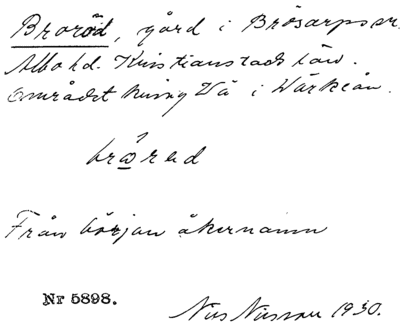 Broröd, gård i Brösarps sn.
Albo hd. Kristianstads län.
Området kring Vä i Värkeån.
bråred
Från början åkernamn
Nr 5898.
Nils Nilsson 1930.